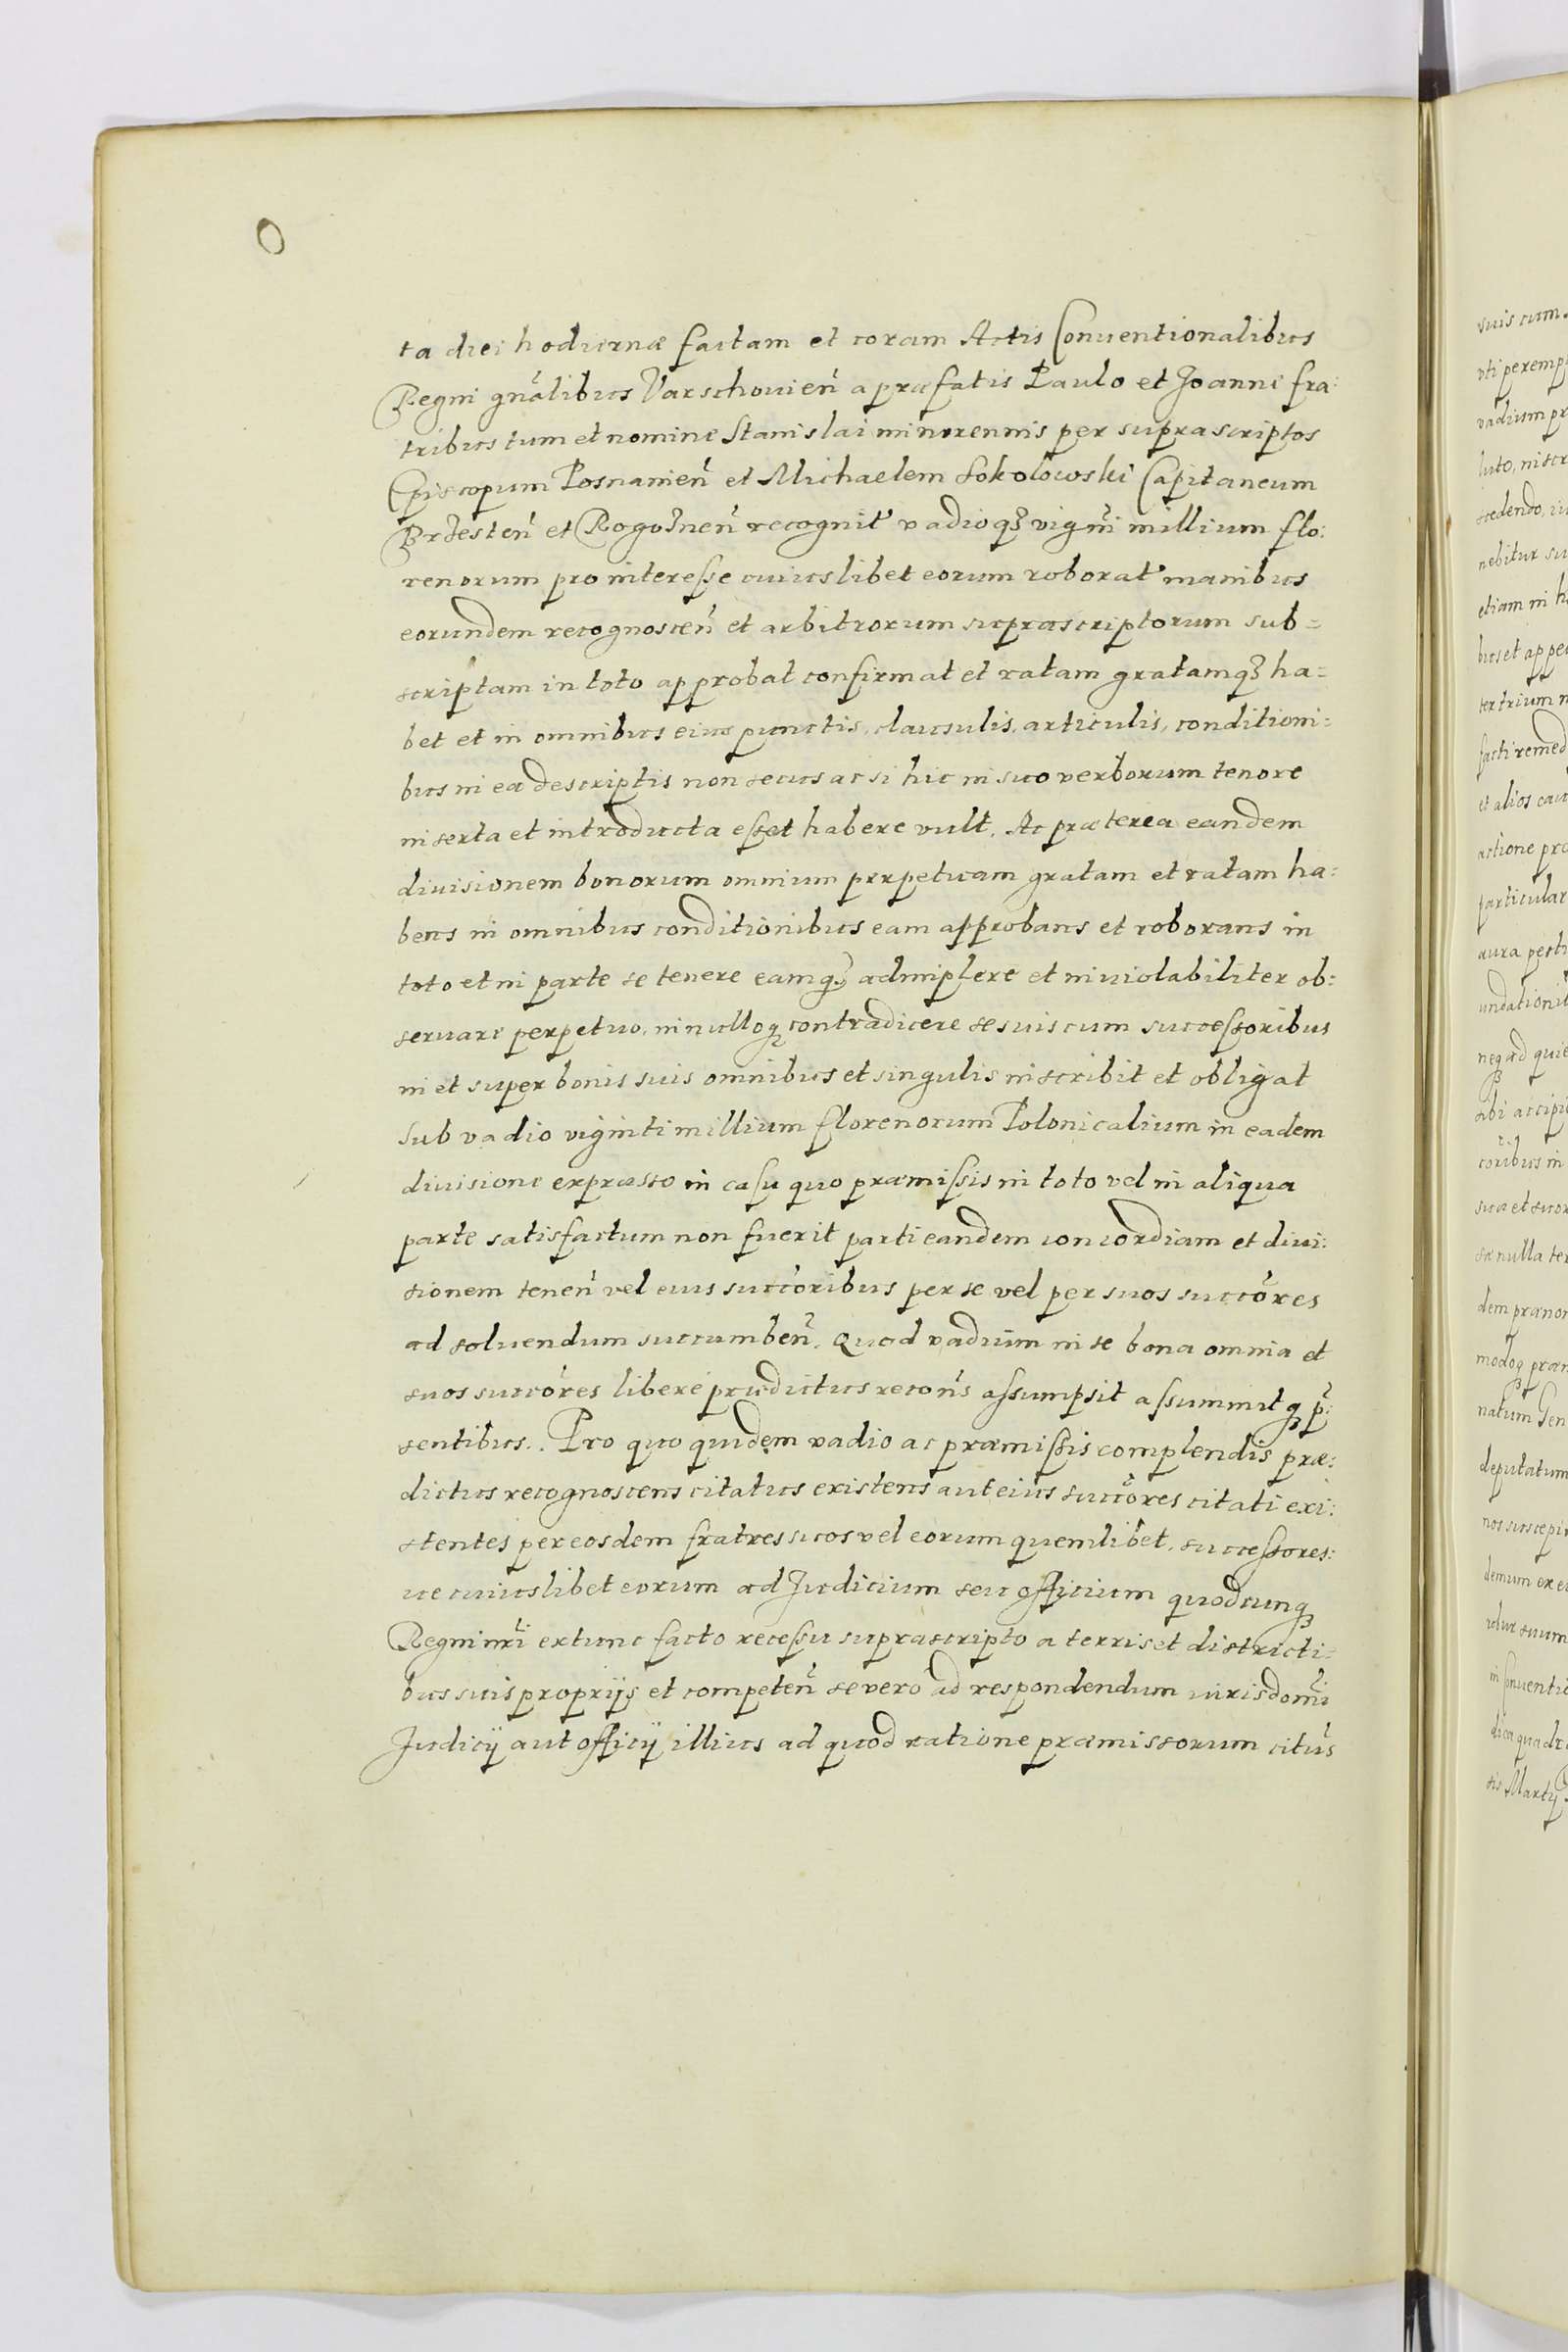 ta diei hodiernæ factam et coram Actis Conuentionalibus
Regni gnãlibus Varschouien̄ a præfatis Paulo et Joanne fra:
tribus tum et nomine Stanislai minorennis per suprascriptos
Episcopum Posnanien̄ et Michaelem Sokolowski Capitaneum
Brzesten̄ et Rogoznen̄ recognit' vadioqꝫ vigñi millium flo:
renorum pro interesse cuiuslibet eorum roborat' manibus
eorundem recognoscen̄ et arbitrorum suprascriptorum sub=
scriptam in toto approbat confirmat et ratam gratamqꝫ ha=
bet et in omnibus eius punctis, clausulis, articulis, conditioni=
bus in ea descriptis non secus ac si hic in suo verborum tenore
inserta et introducta esset habere vult. Ac præterea eandem
diuisionem bonorum omnium perpetuam gratam et ratam ha:
bens in omnibus conditionibus eam approbans et roborans in
toto et in parte se tenere eamqꝫ adimplere et inuiolabiliter ob:
seruare perpetuo, in nulloqꝫ contradicere se suis cum successoribus
in et super bonis suis omnibus et singulis inscribit et obligat
sub vadio viginti millium florenorum Polonicalium in eadem
diuisione expresso in casu quo præmissis in toto vel in aliqua
parte satisfactum non fuerit parti eandem concordiam et diui:
sionem tenen̄ vel eius succõribus per se vel per suos succõres
ad soluendum succumben̄. Quod vadium in se bona omnia et
suos succõres libere prædictus recoñs assumpsit assummitqꝫ p̄:
sentibus. Pro quo quidem vadio ac præmissis complendis præ:
dictus recognoscens citatus existens aut eius succõres citati exi:
stentes per eosdem fratres suos vel eorum quemlibet, successores:
ue cuiuslibet eorum ad Judicium seu officium quodcunqꝫ
Regni nr̃i extunc facto recessu suprascripto a terris et districti=
bus suis proprijs et competen̄ se vero ad respondendum iurisdom̃i
Judicij aut officij illius ad quod ratione præmissorum citũs